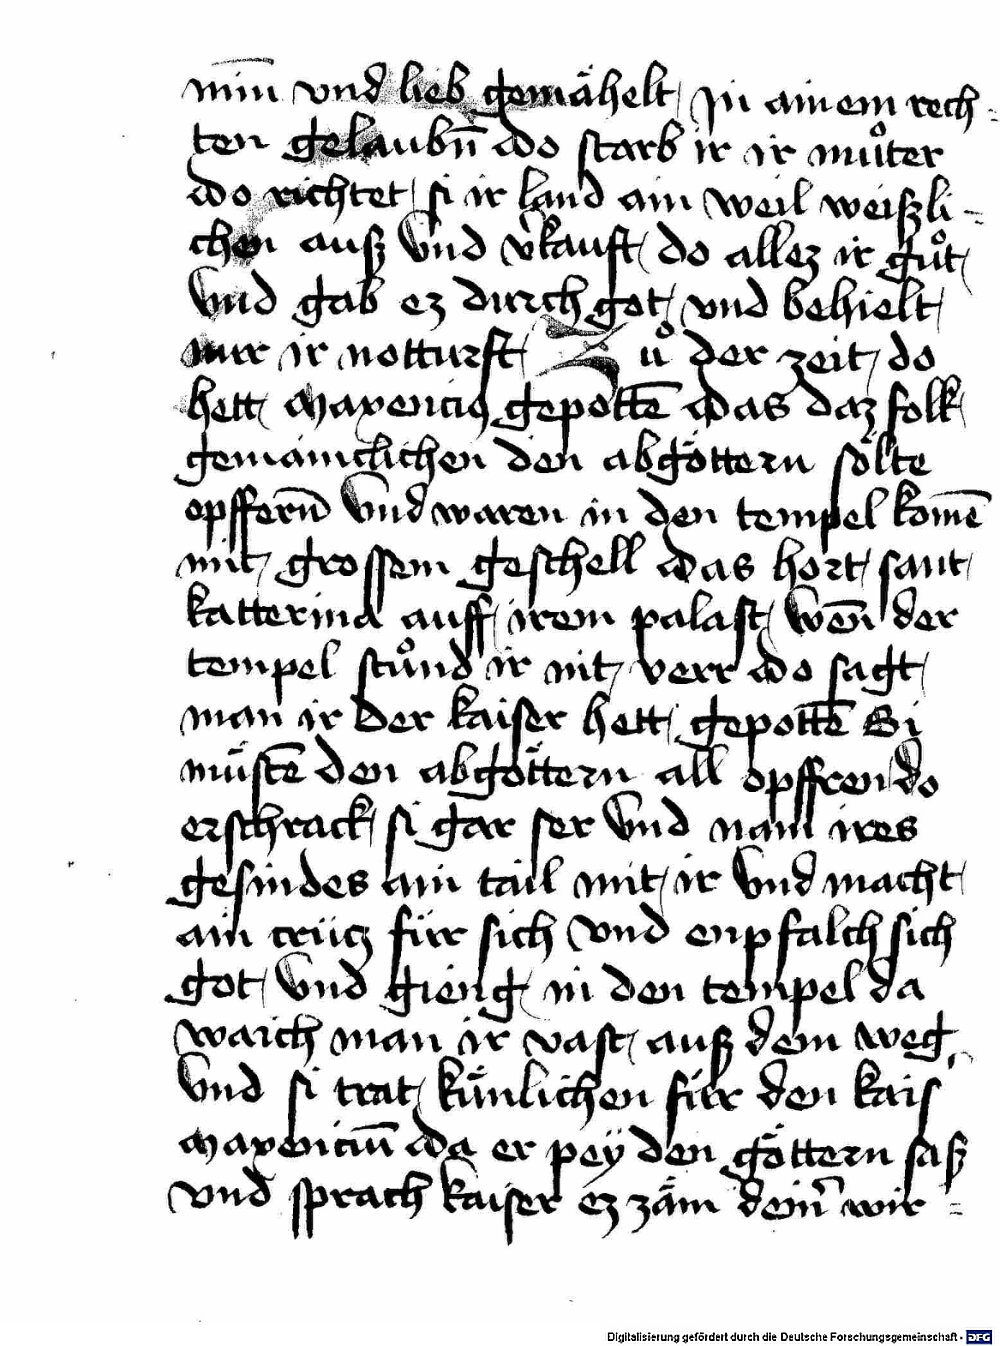 min̄ vnd lieb gemähelt Jn ainem rech=
ten gelaubn̄ do starb ir ir můter
do richtet si ir land ain weil weiszli=
chen ausz vnd v̓kauft do allez ir gůt
vnd gab ez durch got vnd behielt
nur ir notturft Zů der zeit do
hett maxenciꝰ gepottē das daz folk
gemainclichen den abgöttern sölte
opffern̄ vnd waren in den tempel komē
mit grossem geschell das hort sant
katterina auff irem palast wēn der
tempel stůnd ir nit verr do sagt
man ir der kaiser hett gepottē Si
müstē den abgöttern all opffren do
erschrack si gar ser vnd nam ires
gesindes ain tail mit ir vnd macht
ain crücz für sich vnd enpfalch sich
got vnd gieng in den tempel da
waich man ir vast ausz dem weg
vnd si trat künlichen für den kais̓
maxenciū da er pey den göttern sasz
vnd sprach kaiser ez zäm dein̓ wir=
Digitalisierung gefördert durch die Deutsche Forschungsgemeinschaft - DFG